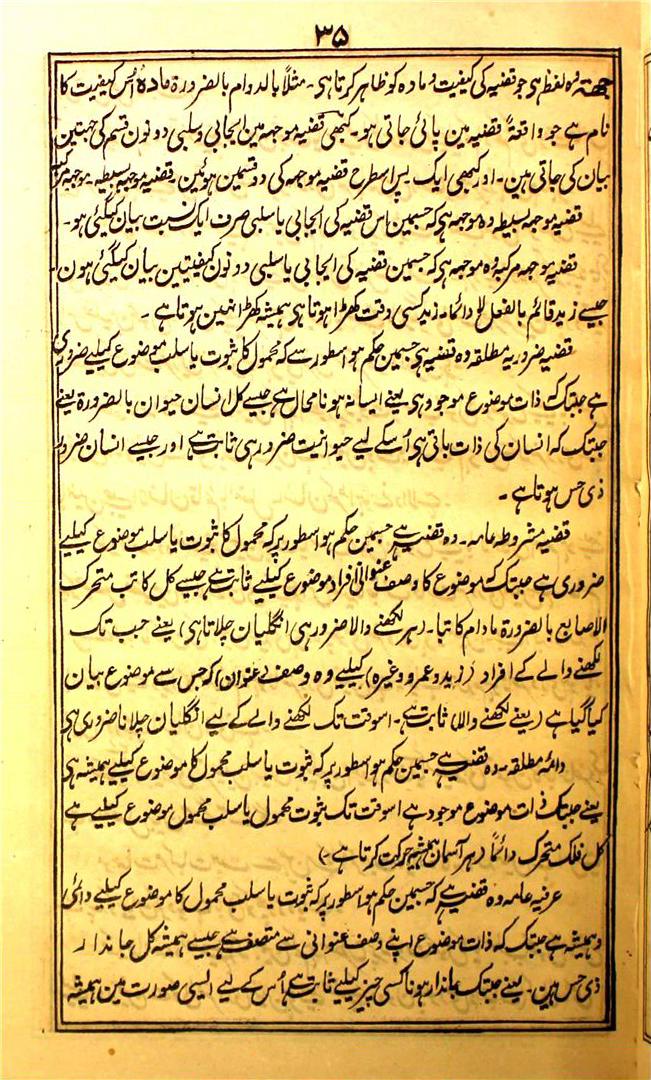 ۳۵
جهته وہ لفظ ہی جو قضیہ کی کیفیت و مادہ کو ظاہر کرتا ہی۔ مثلاً بالدوام بالضرورة مادہ اُس کیفیت کا
نام ہے جو واقعۃً قضیہ مین پائی جاتی ہو۔ کبھی قضیہ موجہہ مین ایجابی و سلبی دونون قسم کی جہتین
بیان کی جاتی ہین۔ اور کبھی ایک پس اسطرح قضیہ موجہہ کی دو قسمین ہوئین۔ قضیہ موجہہ بسیطہ۔ موجہہ مرکبہ
قضیہ موجہہ بسیطہ وہ موجہہ ہی کہ جسمین اس قضیہ کی ایجابی یا سلبی صرف ایک نسبت بیان کیگئی ہو۔
قضیہ موجہہ مرکبہ وُہ موجہہ ہی کہ جسمین قضیہ کی ایجابی یا سلبی دونون کیفیتین بیان کیگئی ہون۔
جیسے زید قائم بالفعل لا دائما۔ زید کسی وقت کھڑا ہوتا ہی ہمیشہ کھڑا نہین ہوتا ہے۔
قضیہ ضروریہ مطلقہ وہ قضیہ ہی جسمین حکم ہو اسطور سے کہ محمول کا ثبوت یا سلب موضوع کیلیے ضروری
ہے جبتک کہ ذات موضوع موجود ہی یعنے ایسا نہ ہونا محال ہے جیسے کل انسان حیوان بالضرورة یعنے
جبتک کہ انسان کی ذات باقی ہی اُسکے لیے حیوانیت ضرور ہی ثابت ہے اور جیسے انسان ضرور
ذی حس ہوتا ہے۔
قضیہ مشروطہ عامہ۔ وہ قضیہ ہے جسمین حکم ہو اسطور پر کہ محمول کا ثبوت یا سلب موضوع کیلیے
ضروری ہے جبتک کہ موضوع کا وصف عنوانی افراد موضوع کیلیے ثابت ہے جیسے کل کاتب متحرک
الاصابع بالضرورة مادام کاتبا۔ (ہر لکھنے والا ضرور ہی انگلیان چلاتا ہی) یعنے جب تک
لکھنے والے کے افراد (زید و عمرو وغیرہ) کیلیے وہ وصف (عنوان) کہ جس سے موضوع بیان
کیا گیا ہے (یعنے لکھنے والا) ثابت ہے۔ اسوقت تک لکھنے والے کے لیے انگلیان چلانا ضروری ہی
دائمہ مطلقہ۔ وہ قضیہ ہے جسمین حکم ہو اسطور پر کہ ثبوت یا سلب محمول کا موضوع کیلیے ہمیشہ ہی
یعنے جبتک ذات موضوع موجود ہے اسوقت تک ثبوت محمول یا سلب محمول موضوع کیلیے ہے
کل فلک متحرک دائماً (ہر آسمان ہمیشہ حرکت کرتا ہے۔)
عرفیہ عامہ وہ قضیہ ہے کہ جسمین حکم ہو اسطور پر کہ ثبوت یا سلب محمول کا موضوع کیلیے دائمی
و ہمیشہ ہے جبتک کہ ذات موضوع اپنے وصف عنوانی سے متصف ہے جیسے ہمیشہ کل جاندار
ذی حس ہین۔ یعنے جبتک جاندار ہونا کسی چیز کیلیے ثابت ہے اُس کے لیے ایسی صورت مین ہمیشہ